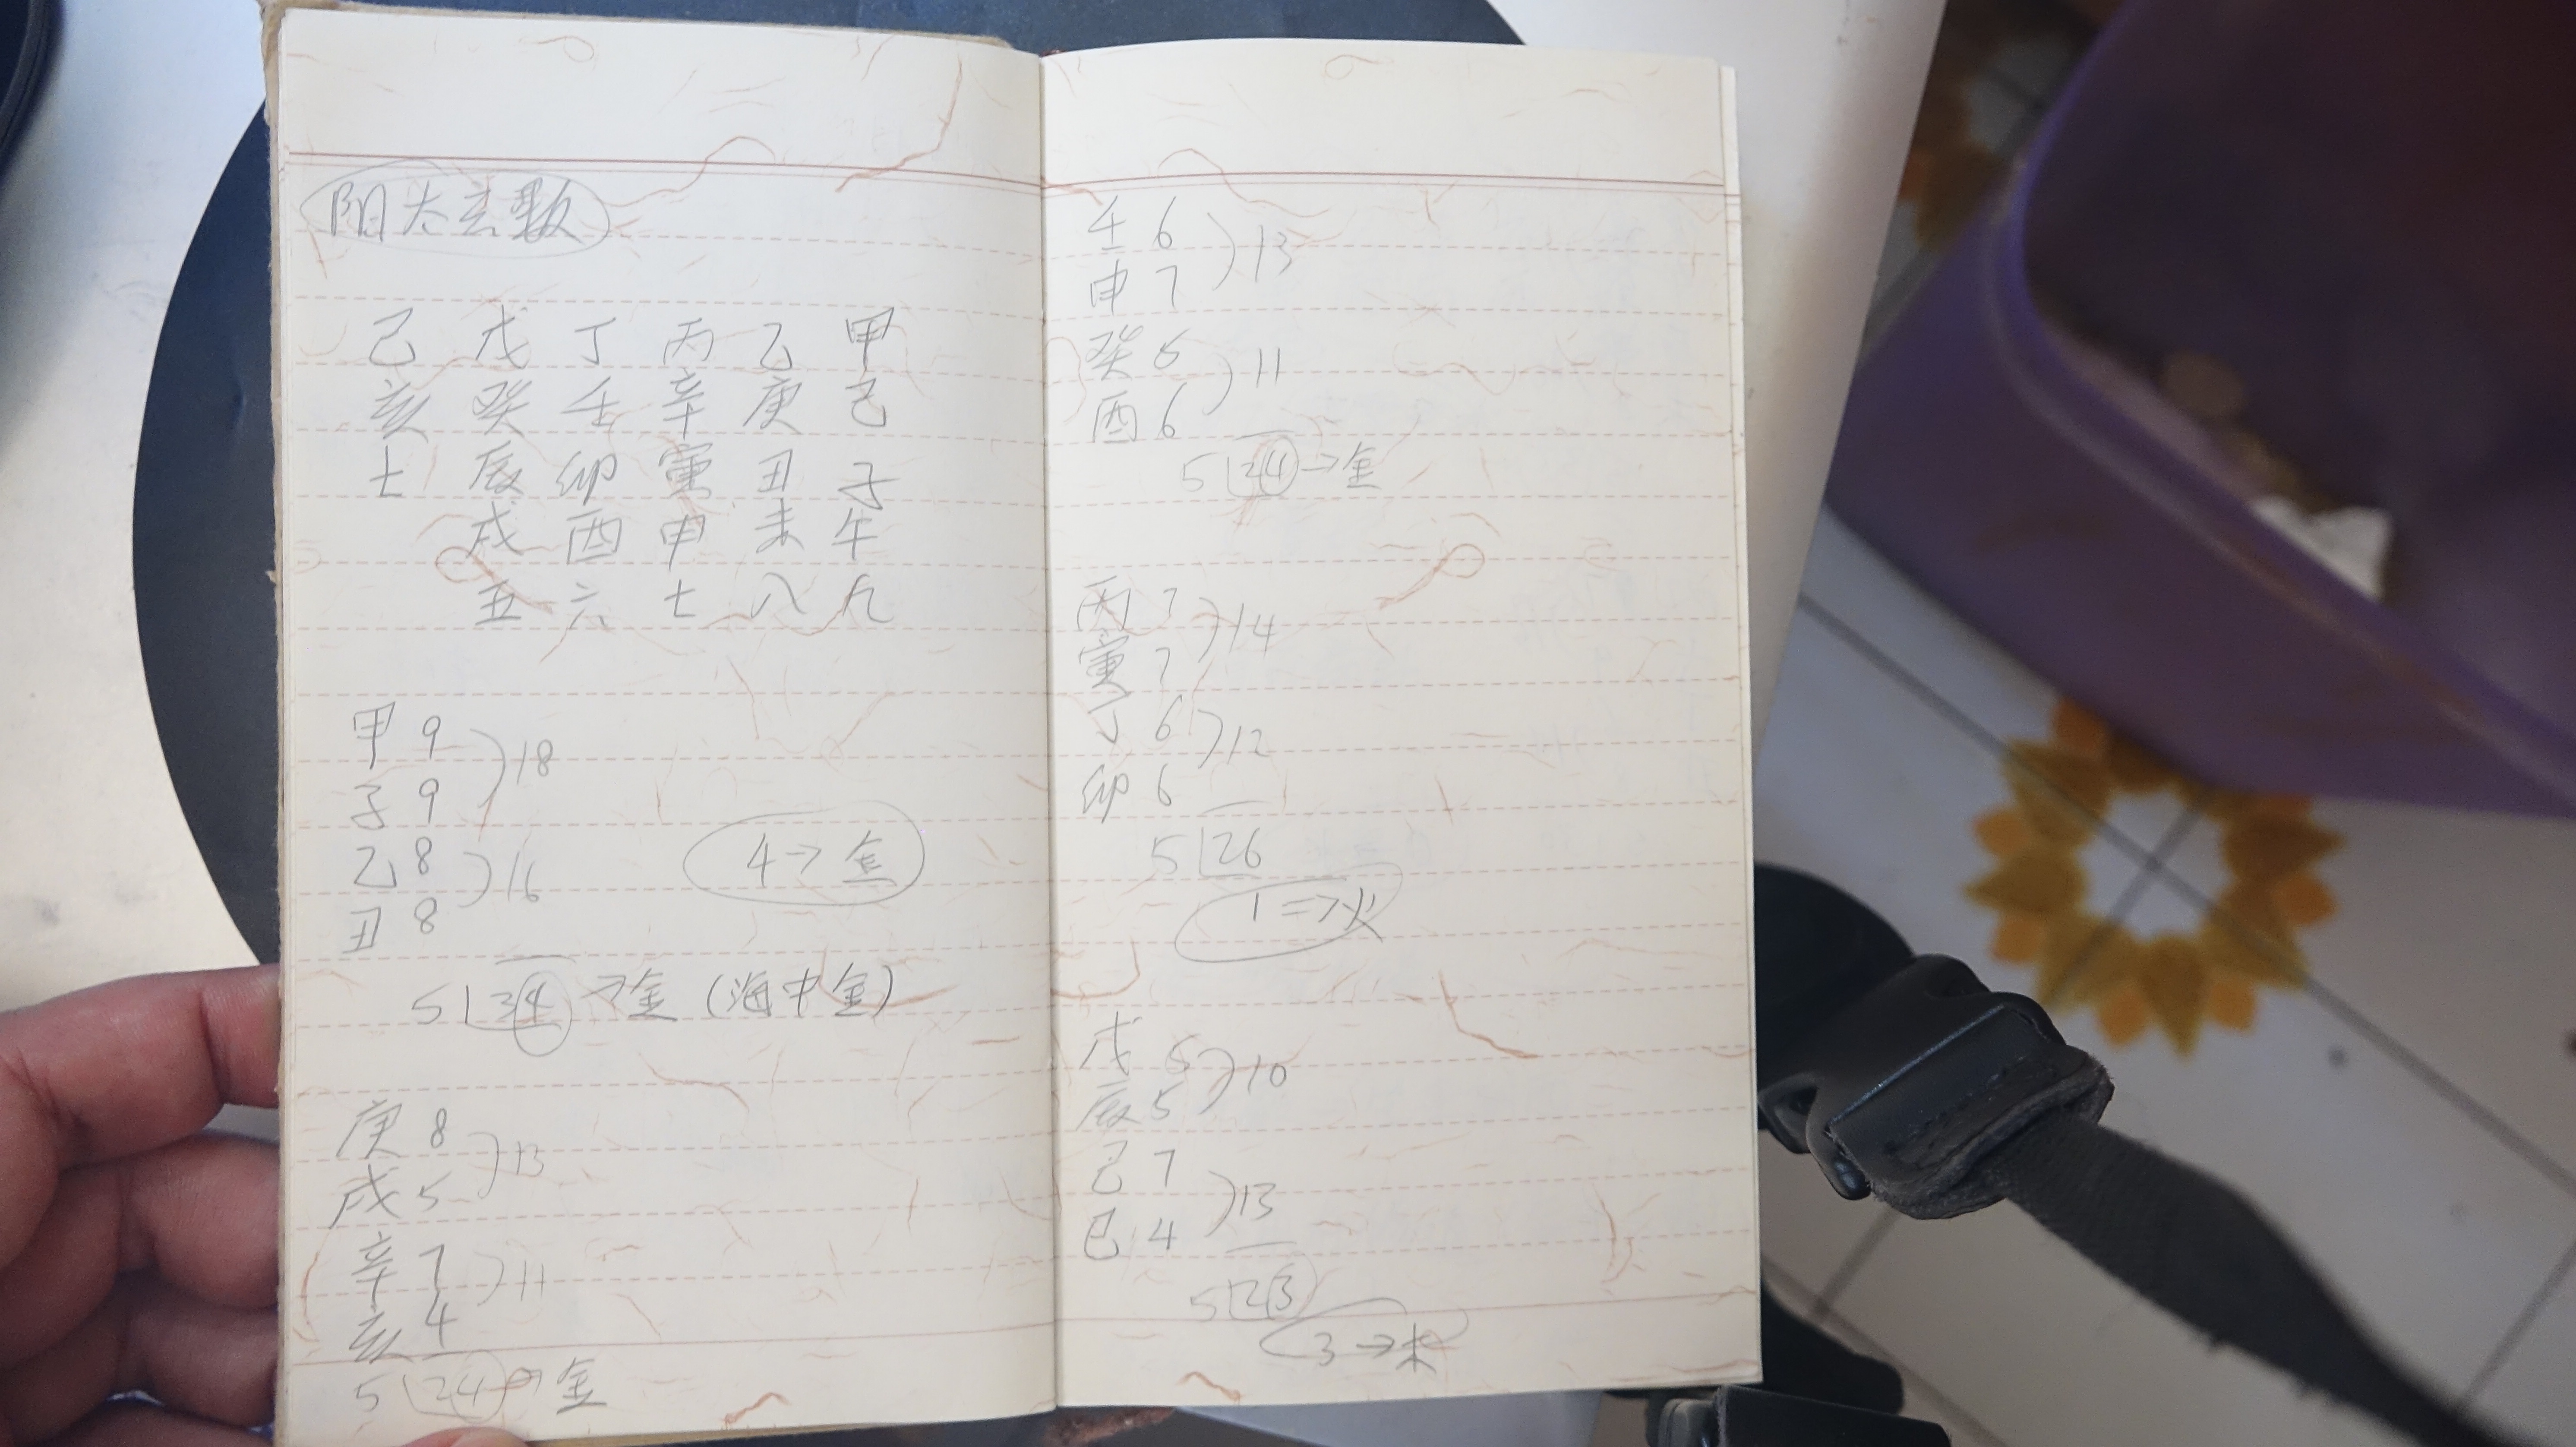 阳太玄数
己 戊 丁 丙 乙 甲
亥 癸 壬 辛 庚 己
七 辰 卯 寅 丑 子
戌 酉 申 未 午
五 六 七 八 九
甲 9
子 9 )18
乙 8
丑 8 )16
4→金
5 34 →金(海中金)
庚 8
戌 5 )13
辛 7
亥 4 )11
5 24 → 金
壬 6
申 7 )13
癸 5
酉 6 )11
5 24 →金
丙 7
寅 7 )14
丁 6
卯 6 )12
5 26
1 ⇒火
戊 5
辰 5 )10
己 7
巳 4 )13
5 23
3→木